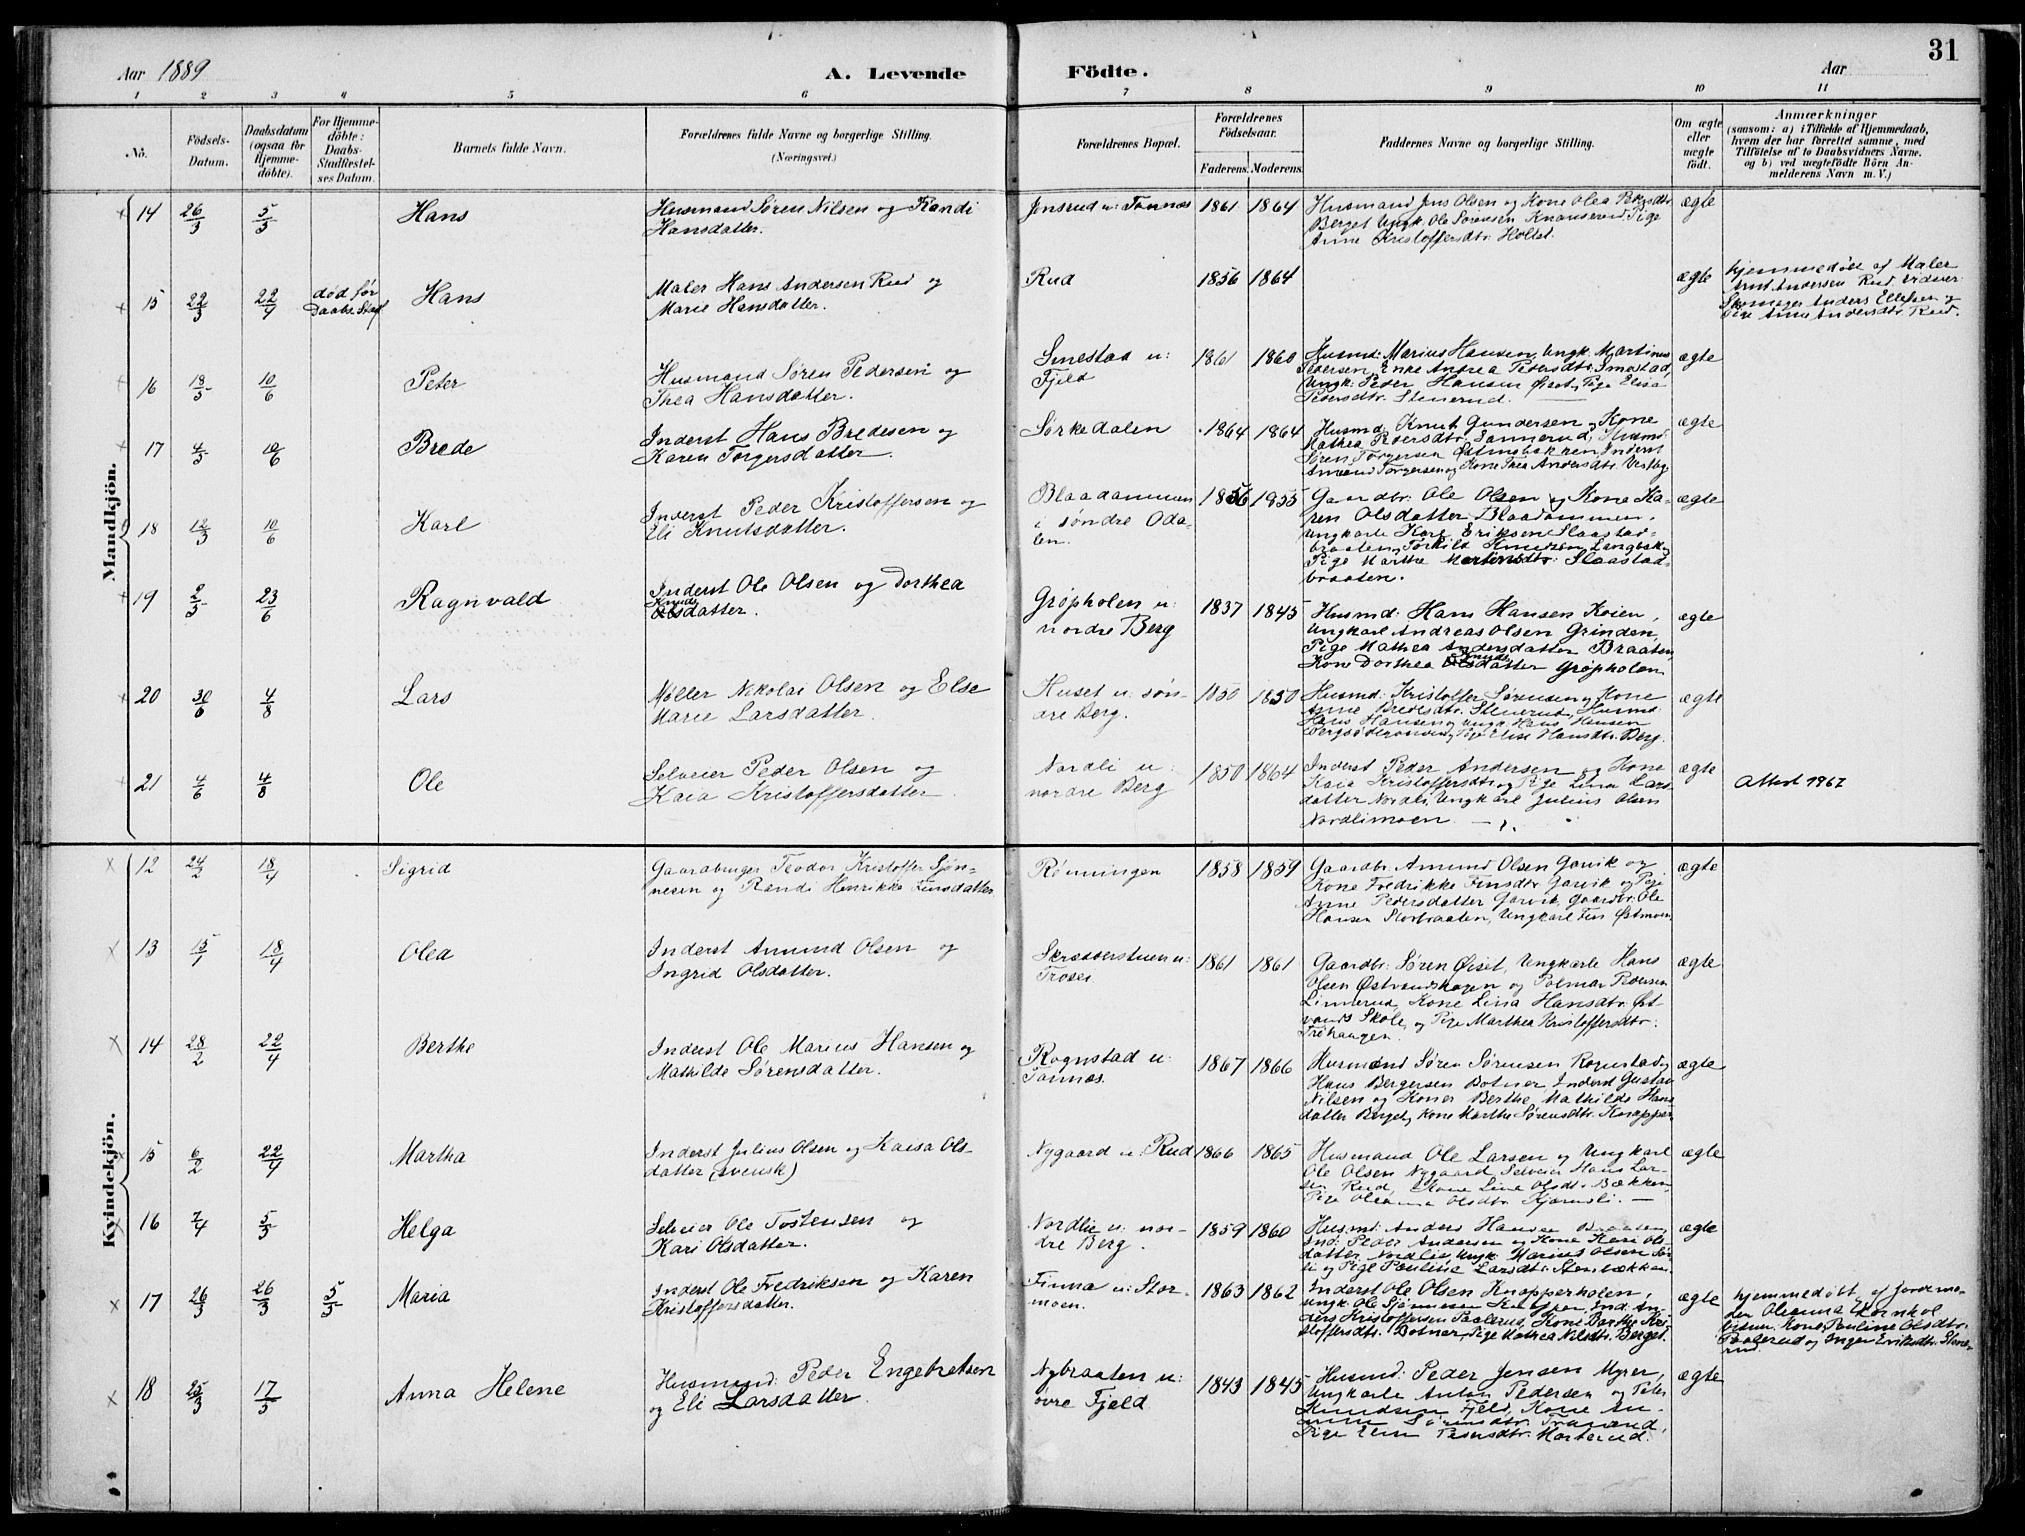 31
Aar 1889
A. Levende
Födte.
Aar
1 2 3 4 5 6 7 8 9 10 11
No.
Födsels-Datum.
Daabsdatum (ogsaa for Hjemme-döbte).
For Hjemme-döbte: Daabs-Stadfæstel-ses Datum.
Barnets fulde Navn.
Forældrenes fulde Navne og borgerlige Stilling.
(Næringsvei.)
Forældrenes Bopæl.
Forældrenes Födselsaar.
Faderens. Moderens.
Faddernes Navne og borgerlige Stilling.
Om ægte eller uægte født.
Anmærkninger
(saasom: a) i Tilfælde af Hjemmedaab,
hvem der har forrettet samme, med
Tilföielse af to Daabsvidners Navne,
og b) ved uægtefödte Börn An-
melderens Navn m. V.)
Mandkjön.
14 26/3 5/5 Hans
Husmand Søren Nilsen og Randi
Hansdatter.
Jensrud u: Tannæs 1861 1864
Husmand Jens Olsen og Kone Olea Pedersdtr.
Berget Ungk. Ole Sørensen Knapperud Pige
Anne Kristoffersdtr. Holtet.
ægte
15 22/3 22/4 død før Daabs. Stadf. Hans
Maler Hans Andersen Rud og
Marie Hansdatter.
Rud 1856 1864
ægte
hjemmedøbt af Maler
Andersen Rud. Vidner:
Skomager Anders Ellefsen og
Pige Anne Andersdtr. Rud.
16 18/5 10/6 Peter
Husmand Søren Pedersen og
Thea Hansdatter.
Smestad u:
Fjeld
1861 1860
Husmd: Marius Hansen, Ungk. Martinus
Pedersen, Enke Andrea Pedersdtr. Smestad,
Ungk: Peder Hansen Øiset, Pige Elisa
Pedersdtr. Stenerud.
ægte
17 4/5 10/6 Brede
Inderst Hans Bredesen og
Karen Torgersdatter.
Sørkedalen 1864 1864
Husmd. Knut Gundersen og Kone
Mathea Pedersdtr. Sannerud, Husmd
Søren Torgersen Østmobakken Inderst
Amund Torgersen og Kone Thea Andersdtr. Vestby
ægte
18 12/3 10/6 Karl
Inderst Peder Kristoffersen og
Eli Knutsdatter.
Blaadammen
i søndre Oda-
len.
1856 1855
Gaardbr: Ole Olsen og Kone Ka-
ren Olsdatter Blaadammen,
Ungkarle Karl Eriksen Slaastad-
braaten, Torkild Knutsen Langbak,
Pige Marthe Martinsdtr: Slaastad-
braaten.
ægte
19 2/5 23/6 Ragnvald
Inderst Ole Olsen og Dorthea
Knuds
Olsdatter.
Grøpholen u:
nordre Berg
1837 1845
Husmd: Hans Hansen Koien,
Ungkarl Andreas Olsen Grinden,
Pige Mathea Andersdatter Braaten,
Kone Dorthea Knudsdatter Grøpholen
ægte
20 30/6 4/8 Lars
Møller Nikolai Olsen og Else
Marie Larsdatter.
Huset u: søn-
dre Berg.
1850 1850
Husmd: Kristoffer Sørensen og Kone
Anne Bredesdtr. Stenerud, Husmd:
Hans Hansen og Ungk. Hans Hansen
og Pige Elise Hansdtr. Berg.
ægte
21 4/6 4/8 Ole
Selveier Peder Olsen og
Kaia Kristoffersdatter.
Nordli u:
nordre Berg
1850 1864
Inderst Peder Andersen og Kone
Kaia Kristoffersdtr. og Pige Lina Lars-
datter Nordli, Ungkarl Julius Olsen
Nordlimoen.
ægte
Attest 1967
Kvindekjön.
12 24/2 18/4 Sigrid
Gaardbruger Teodor Kristoffer Sjøn-
nesen og Randi Henrikke Finsdatter
Rønningen 1858 1859
Gaardbr. Amund Olsen Garvik og
Kone Fredrikke Finsdtr. Garvik og Pige
Anne Pedersdatter Garvik, Gaardbr: Ole
Hansen Storbraaten, Ungkarl Fin Østmoen
ægte
13 15/1 18/4 Olea
Inderst Amund Olsen og
Ingrid Olsdatter.
Skrædderstuen u:
Troset
1861 1861
Gaardbr: Søren Øiset, Ungkarle Hans
Olsen Østvandshagen og Palmar Pedersen
Linnerud, Kone Lina Hansdtr. Øst-
vands Skole, og Pige Marthea Kristoffersdtr:
Trøhaugen
ægte
14 28/2 22/4 Berthe
Inderst Ole Marius Hansen og
Mathilde Sørensdatter.
Rognstad u:
Tannæs.
1867 1866
Husmand Søren Sørensen Rognstad,
Hans Bergersen Botner Inderst Gustav
Nilsen og Koner Berthe Mathilde Hans
datter Berget, Kone Marthe Sørensdtr. Knapper
ægte
15 6/2 22/4 Martha
Inderst Julius Olsen og Kaisa Ols-
datter (svensk)
Nygaard u: Rud 1866 1865
Husmand Ole Larsen og Ungkarl
Ole Olsen Nygaard, Selveier Hans Lar-
sen Rud, Kone Lina Olsdtr. Bækken,
Pige Oleana Olsdtr Hjørnsli.
ægte
16 7/4 5/5 Helga
Selveier Ole Tostensen og
Kari Olsdatter.
Nordlie u: nor-
dre Berg.
1859 1860
Husmd. Anders Hansen Braaten,
Ind: Peder Andersen og Kone Kari Ols-
datter Nordlie, Ungk: Marius Olsen Sør-
li og Pige Pauline Larsdtr. Stenbækken.
ægte
17 26/3 26/3 5/5 Maria
Inderst Ole Fredriksen og Karen
Kristoffersdatter.
Finna u: Stor-
moen.
1863 1862
Inderst Ole Olsen Knapperholen,
Ungk. Ole Sjønnesen Knapper, Ind. An-
ders Kristoffersen Paalerud, Kone Berthe Kri-
stoffersdtr. Botner, Pige Mathea Nilsdtr. Berget.
ægte
hjemmedøbt af Jordemo-
der Oleanna Kornhol
Vidner: Kone Pauline Olsdtr.
Paalerud og Inger Eriksdtr. Stene-
rud.
18 25/3 17/5 Anna Helene
Husmand: Peder Engebretsen
og Eli Larsdatter.
Nybraaten u:
øvre Fjeld
1843 1845
Husmd: Peder Jensen Myrer,
Ungkarle Anton Pedersen og Peter
Knudsen Fjeld, Kone An-
Sørensdtr.
Pige Elen Pedersdtr. Marterud.
ægte